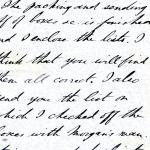 The packing and sending
off of boxes &c is finished
and I enclose the lists. I
think that you will find
them all correct. I also
send you the list on
which I checked off the
boxes with Morgan's man.